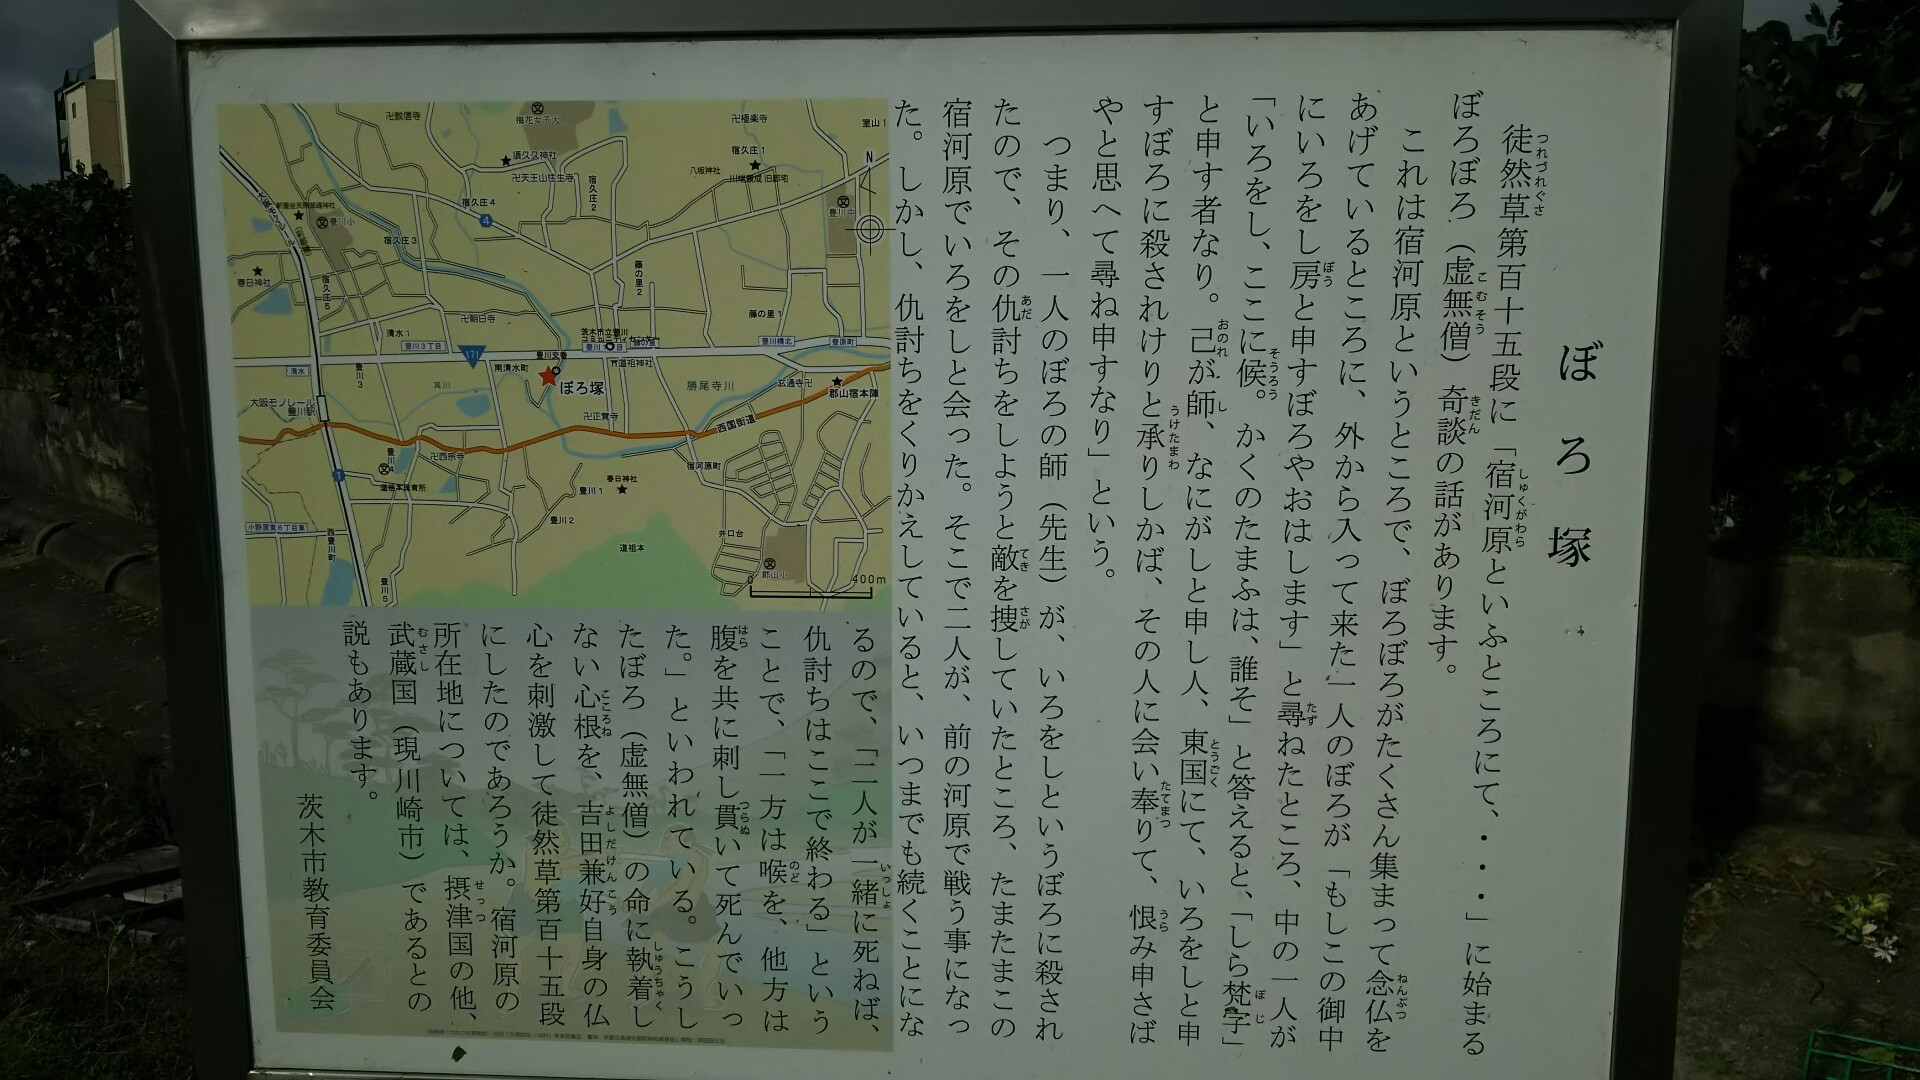 ぼろ塚
徒然草第百十五段に「宿河原といふところにて、・・・」に始まる
ぼろぼろ（虚無僧）奇談の話があります。
これは宿河原というところで、ぼろぼろがたくさん集まって念仏を
あげているところに、外から入って来た一人のぼろが「もしこの御中
にいろをし房と申すぼろやおはします」と尋ねたところ、中の一人が
「いろをし、ここに候。かくのたまふは、誰そ」と答えると、「しら梵字」
と申す者なり。己が師、なにがしと申し人、東国にて、いろをしと申
すぼろに殺されけりと承りしかば、その人に会い奉りて、恨み申さば
やと思へて尋ね申すなり」という。
つまり、一人のぼろの師（先生）が、いろをしというぼろに殺され
たので、その仇討ちをしようと敵を捜していたところ、たまたまこの
宿河原でいろをしと会った。そこで二人が、前の河原で戦う事になっ
た。しかし、仇討ちをくりかえしていると、いつまでも続くことにな
るので、「二人が一緒に死ねば、
仇討ちはここで終わる」という
ことで、「一方は喉を、他方は
腹を共に刺し貫いて死んでいっ
た。」といわれている。こうし
たぼろ（虚無僧）の命に執着し
ない心根を、吉田兼好自身の仏
心を刺激して徒然草第百十五段
にしたのであろうか。宿河原の
所在地については、摂津国の他、
武蔵国（現川崎市）であるとの
説もあります。
茨木市教育委員会
卍教信寺
梅花女子大
卍極楽寺
室山1
須久久神社
卍天王山往生寺
宿久庄1
八坂神社
川端康成旧邸宅
N
宿久庄4
宿久庄2
4
豊川中
豊川小
宿久庄3
春日神社
宿久庄5
藤の里2
藤の里1
卍朝日寺
清水1
豊川3丁目
171
豊川橋北
豊原町
清水
豊川3
南清水町
豊川交番
ぼろ塚
道祖神社
勝尾寺川
玄通寺卍
郡山宿本陣
箕川
大阪モノレール
豊川駅
卍正覚寺
西国街道
卍西宗寺
豊川4
宿河原町
春日神社
豊川1
1
豊川2
小野原東6丁目東
西豊川町
道祖本
井口台
郡山小
豊川5
0 400m